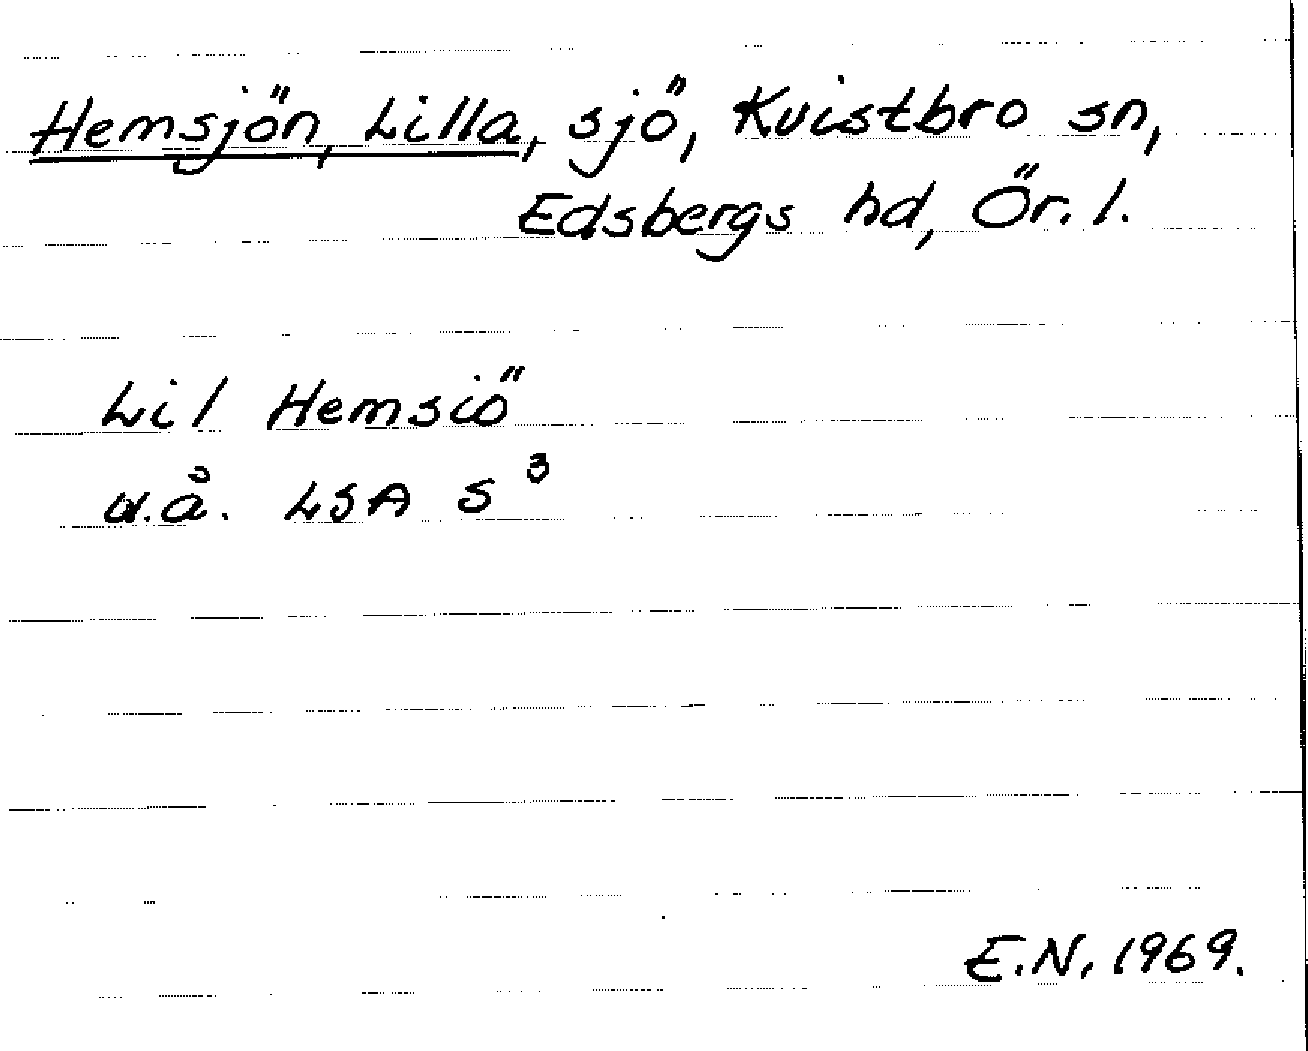 Hemsjön, Lilla, sjö, Kvistbro sn,
Edsbergs hd, Ör. l.
Lil Hemsiö
u.å. LSA S 3
E.N. 1969.